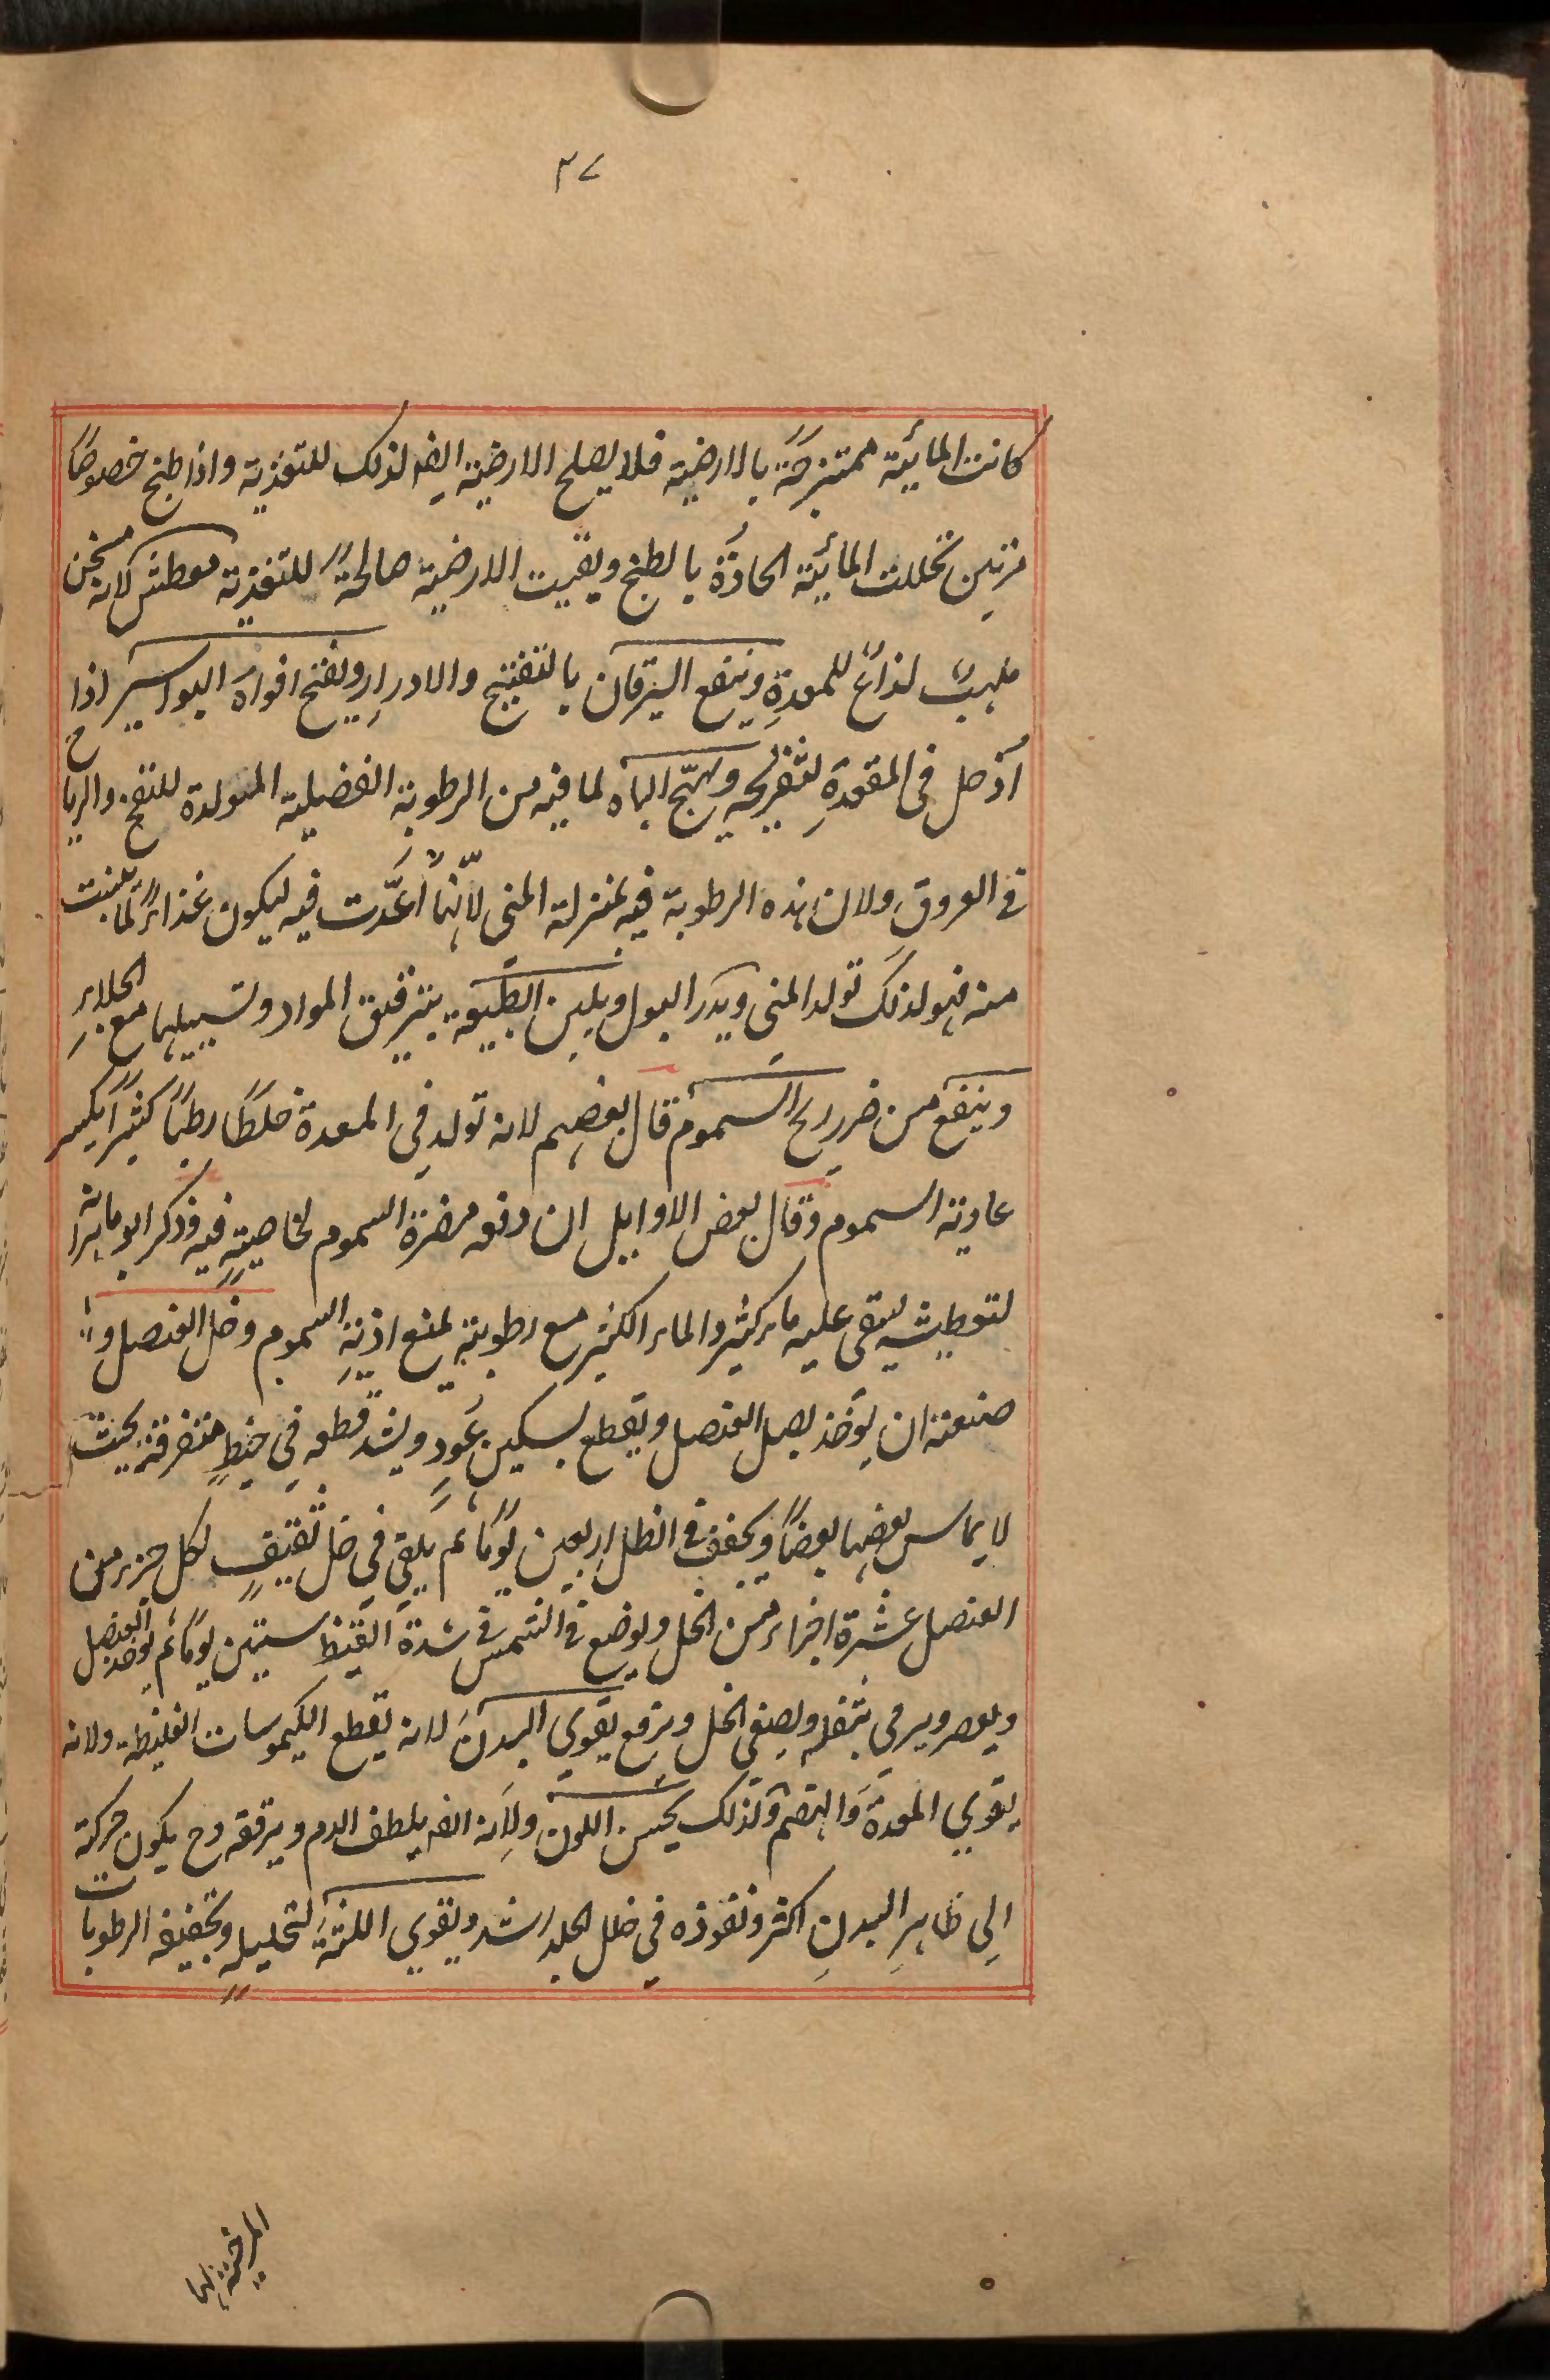 ٣٧
كانت المائية ممتزجة بالارضية فلا يصلح الارضية ايضا لذلك للتغذية واذا طبخ خصوصًا
مرتين تحللت المائية الحادة بالطبخ وبقيت الارضية صالحةً للتغذية معطش لانه مسخن
ملهب لذاع للمعدة وينفع اليرقان بالتفتيح والادرار ويفتح افواه البواسير اذا
أدخل في المقعدة لتقريحه ويهيّج الباه لما فيه من الرطوبة الفضلية المتولدة للنفخ والرياح
في العروق ولان هذه الرطوبة فيه بمنزلة المني لأنها أعدّت فيه ليكون غذاءً لما ينبت
منه فهو لذلك تولد المني ويدر البول ويلين الطبيعة بترقيق المواد وتسييلها مع الجلاء
وينفع من ضرر ريح السموم قال بعضهم لانه تولد في المعدة خلطًا رطبًا كثيرًا يكسر
عادية السموم وقال بعض الاوايل ان دفعه مضرة السموم لخاصية فيه وذكر ابو ماهر انه
لتعطيشه يستقى عليه ماء كثير والماء الكثير مع رطوبته يمنع اذية السموم وخل العنصل و
صنعته ان يؤخذ بصل العنصل ويقطع بسكين عود ويشد قطعه في خيط متفرقة بحيث
لا يماس بعضها بعضًا ويجفف في الظل اربعين يومًا ثم يلقى في خل ثقيف لكل جزء من
العنصل عشرة اجزاء من الخل ويوضع في الشمس في شدة القيظ ستين يومًا ثم يؤخذ العنصل
ويعصر ويرمى بثفله ويصفى الخل ويرفع يقوي البدن لانه يقطع الكيموسات الغليظة ولانه
يقوي المعدة والهضم ولذلك يحسن اللون ولأنه ايضا يلطف الدم ويرققه وح يكون حركته
الى ظاهر البدن اكثر ونفوذه في خلل الجلد اشد ويقوي اللثة لتحليله وتجفيفه الرطوبات
المرخية لها